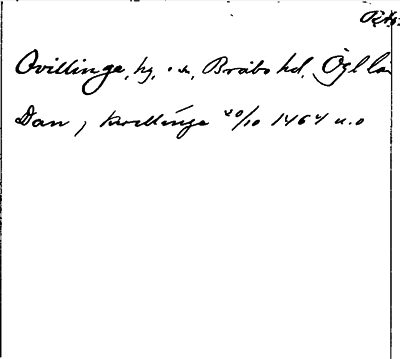 Qvillinge, hg, o. s., Bråbo hd, Ögl la
Dan j kwellinge 20/10 1464 u.o